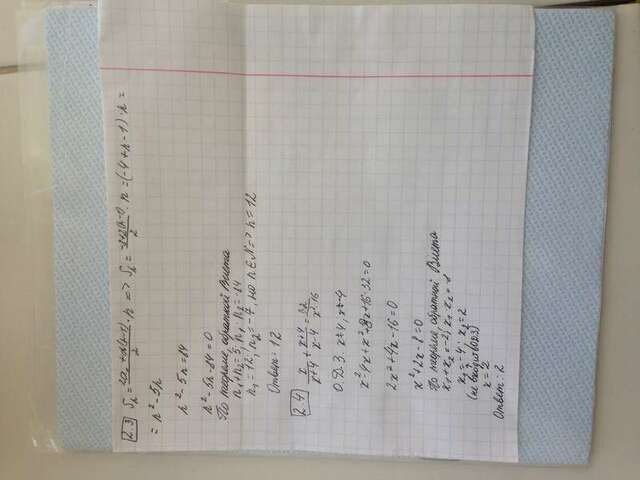 2.3 Sₙ = (2a₁ + d(n-1))/2 · n => Sₙ = (-8+2(n-1))/2 · n = (-4+n-1)·n =
= n² - 5n
n² - 5n = 84
n² - 5n - 84 = 0
По теореме, обратной Виета
n₁+n₂ = 5; n₁ · n₂ = -84
n₁ = 12; n₂ = -7, но n ∈ N => n = 12
Ответ: 12
2.4 x/(x+4) + (x+4)/(x-4) = 32/(x²-16)
О.Д.З. x≠4; x≠-4
x²-4x+x²+8x+16-32=0
2x²+4x-16=0
x²+2x-8=0
По теореме, обратной Виета
x₁+x₂=-2; x₁·x₂=-8
x₁=-4; x₂=2
(не входит в ОДЗ)
x=2
Ответ: 2